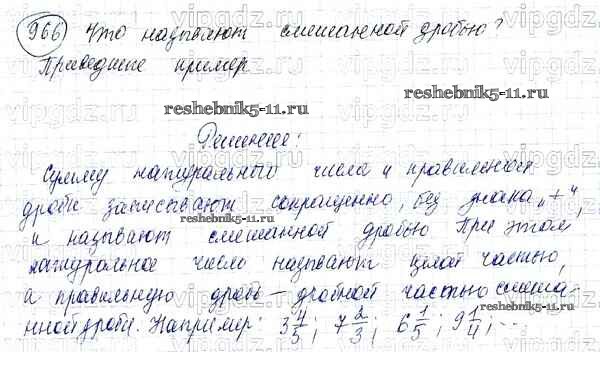 966 Что называют смешанной дробью?
Приведите пример
reshebnik5-11.ru
Решение:
Сумму натурального числа и правильной
дроби записывают сокращенно, без знака „+“,
reshebnik5-11.ru
и называют смешанной дробью При этом
натуральное число называют целой частью,
а правильную дробь – дробной частью смеша-
reshebnik5-11.ru
нной дроби. Например: 3 4/5; 7 2/3; 6 1/5; 9 1/4; ...